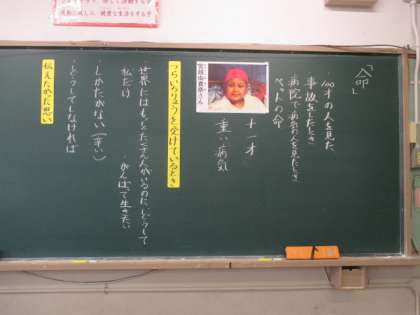 「命」
100才の人を見た
事故をしたとき
病院で病気の人を見たとき
ペットの命
宮越由貴奈さん
十一才
重い病気
つらいちりょうを受けているとき
世界にはもっとたくさん人がいるのに、どうして
私だけ
・がんばって生きたい
・しかたがない(辛い)
・どうしてしなければ
伝えたかた思い